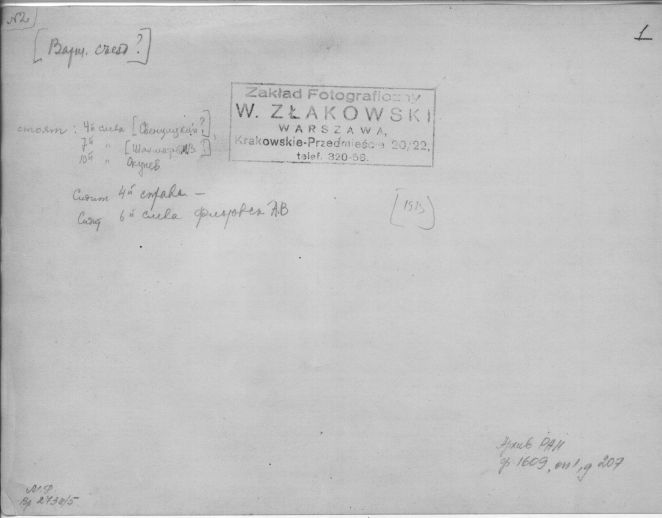 №2
1
[Варш. съезд?]
Zakład Fotograficzny
W. ZŁAKOWSKI
WARSZAWA,
Krakowskie-Przedmieście 20/22,
telef. 320-58.
стоят: 4й слева [?]
7й "
10й " Окунев
Сидит 4й справа —
Сид 6й слева Флоровск А.В
Архив РАН
ф 1609, оп 1, д 207